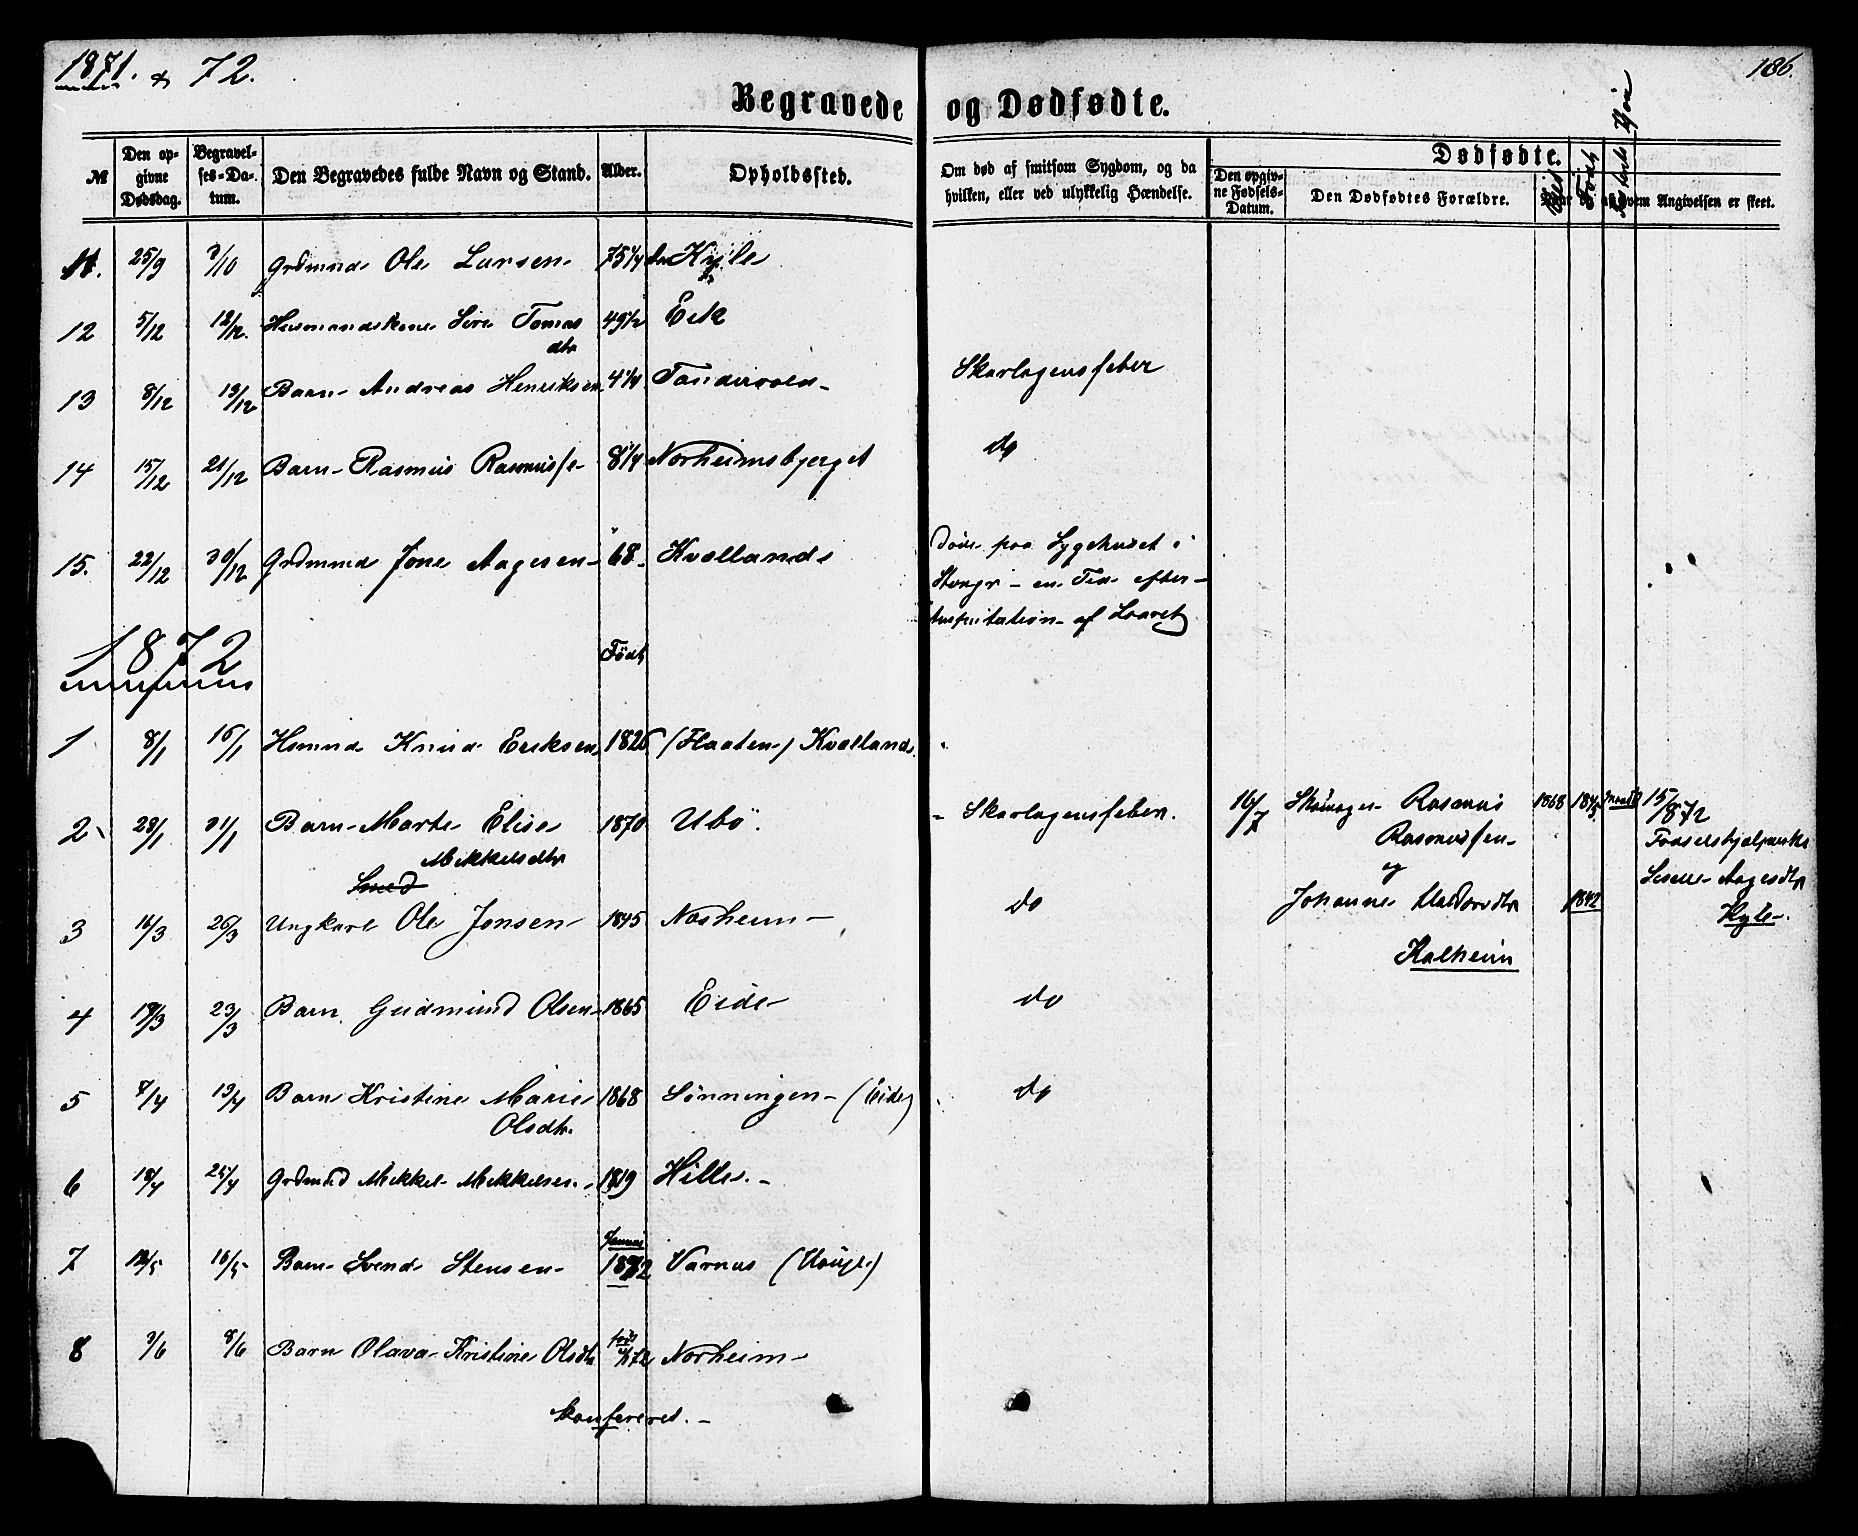 1871. & 72.
186.
Begravede og Dødfødte.
№
Den opgivne Dødsdag.
Begravelses-Datum.
Den Begravedes fulde Navn og Stand.
Alder.
Opholdssted.
Om død af smitsom Sygdom, og da hvilken, eller ved ulykkelig Hændelse.
Dødfødte.
Den opgivne Fødsels-Datum.
Den Dødfødtes Forældre.
af hvem Angivelsen er skeet.
Født
11. 25/9 3/10 Grdmand Ole Larsen 75 1/4 Hyle
12 5/12 12/12. Husmandskone Siri Tomas 49 1/2 Eik
dtr
13 8/12 13/12 Barn Andreas Henriksen 4 1/4 Tandervold Skarlagensfeber
14 15/12 21/12 Barn Rasmus Rasmusse 8 1/4 Norheimsbjerget do
15. 22/12 30/12 Grdmand Jone Aagesen 68. Kvalland Døde paa Sygehuset i
Stvngr - en Tid efter
Amputation af Laaret
1872
Født
1 8/1 16/1 Hsmnd Knud Eriksen 1826 (Flaaten) Kvalland
2 28/1 31/1 Barn Marte Elise 1870 Ubø. Skarlagensfeber. 16/7 Rasmus 1868 1845 15/7
1872
Mikkelsdtr Rasmussen
og
Aagesdtr
3 16/3 26/3 Ungkarl Ole Jonsen 1845 Norheim do Johanne Haldorsdtr 1842 Hyle.
Kalheim
4 19/3 23/3 Barn Gudmund Olsen 1865 Eide do
5 8/4 13/4 Barn Kristine Marie 1868 Lønningen (Eide) do
Olsdtr.
6 18/4 25/4 Grdmnd Mikkel Mikkelsen 1819 Hille.
Januar
7 12/5 16/5 Barn Svend Stensen 1872 Varnus
født
8 3/6 8/6 Barn Olava Kristine Olsdtr 72 Norheim
Konfereret.